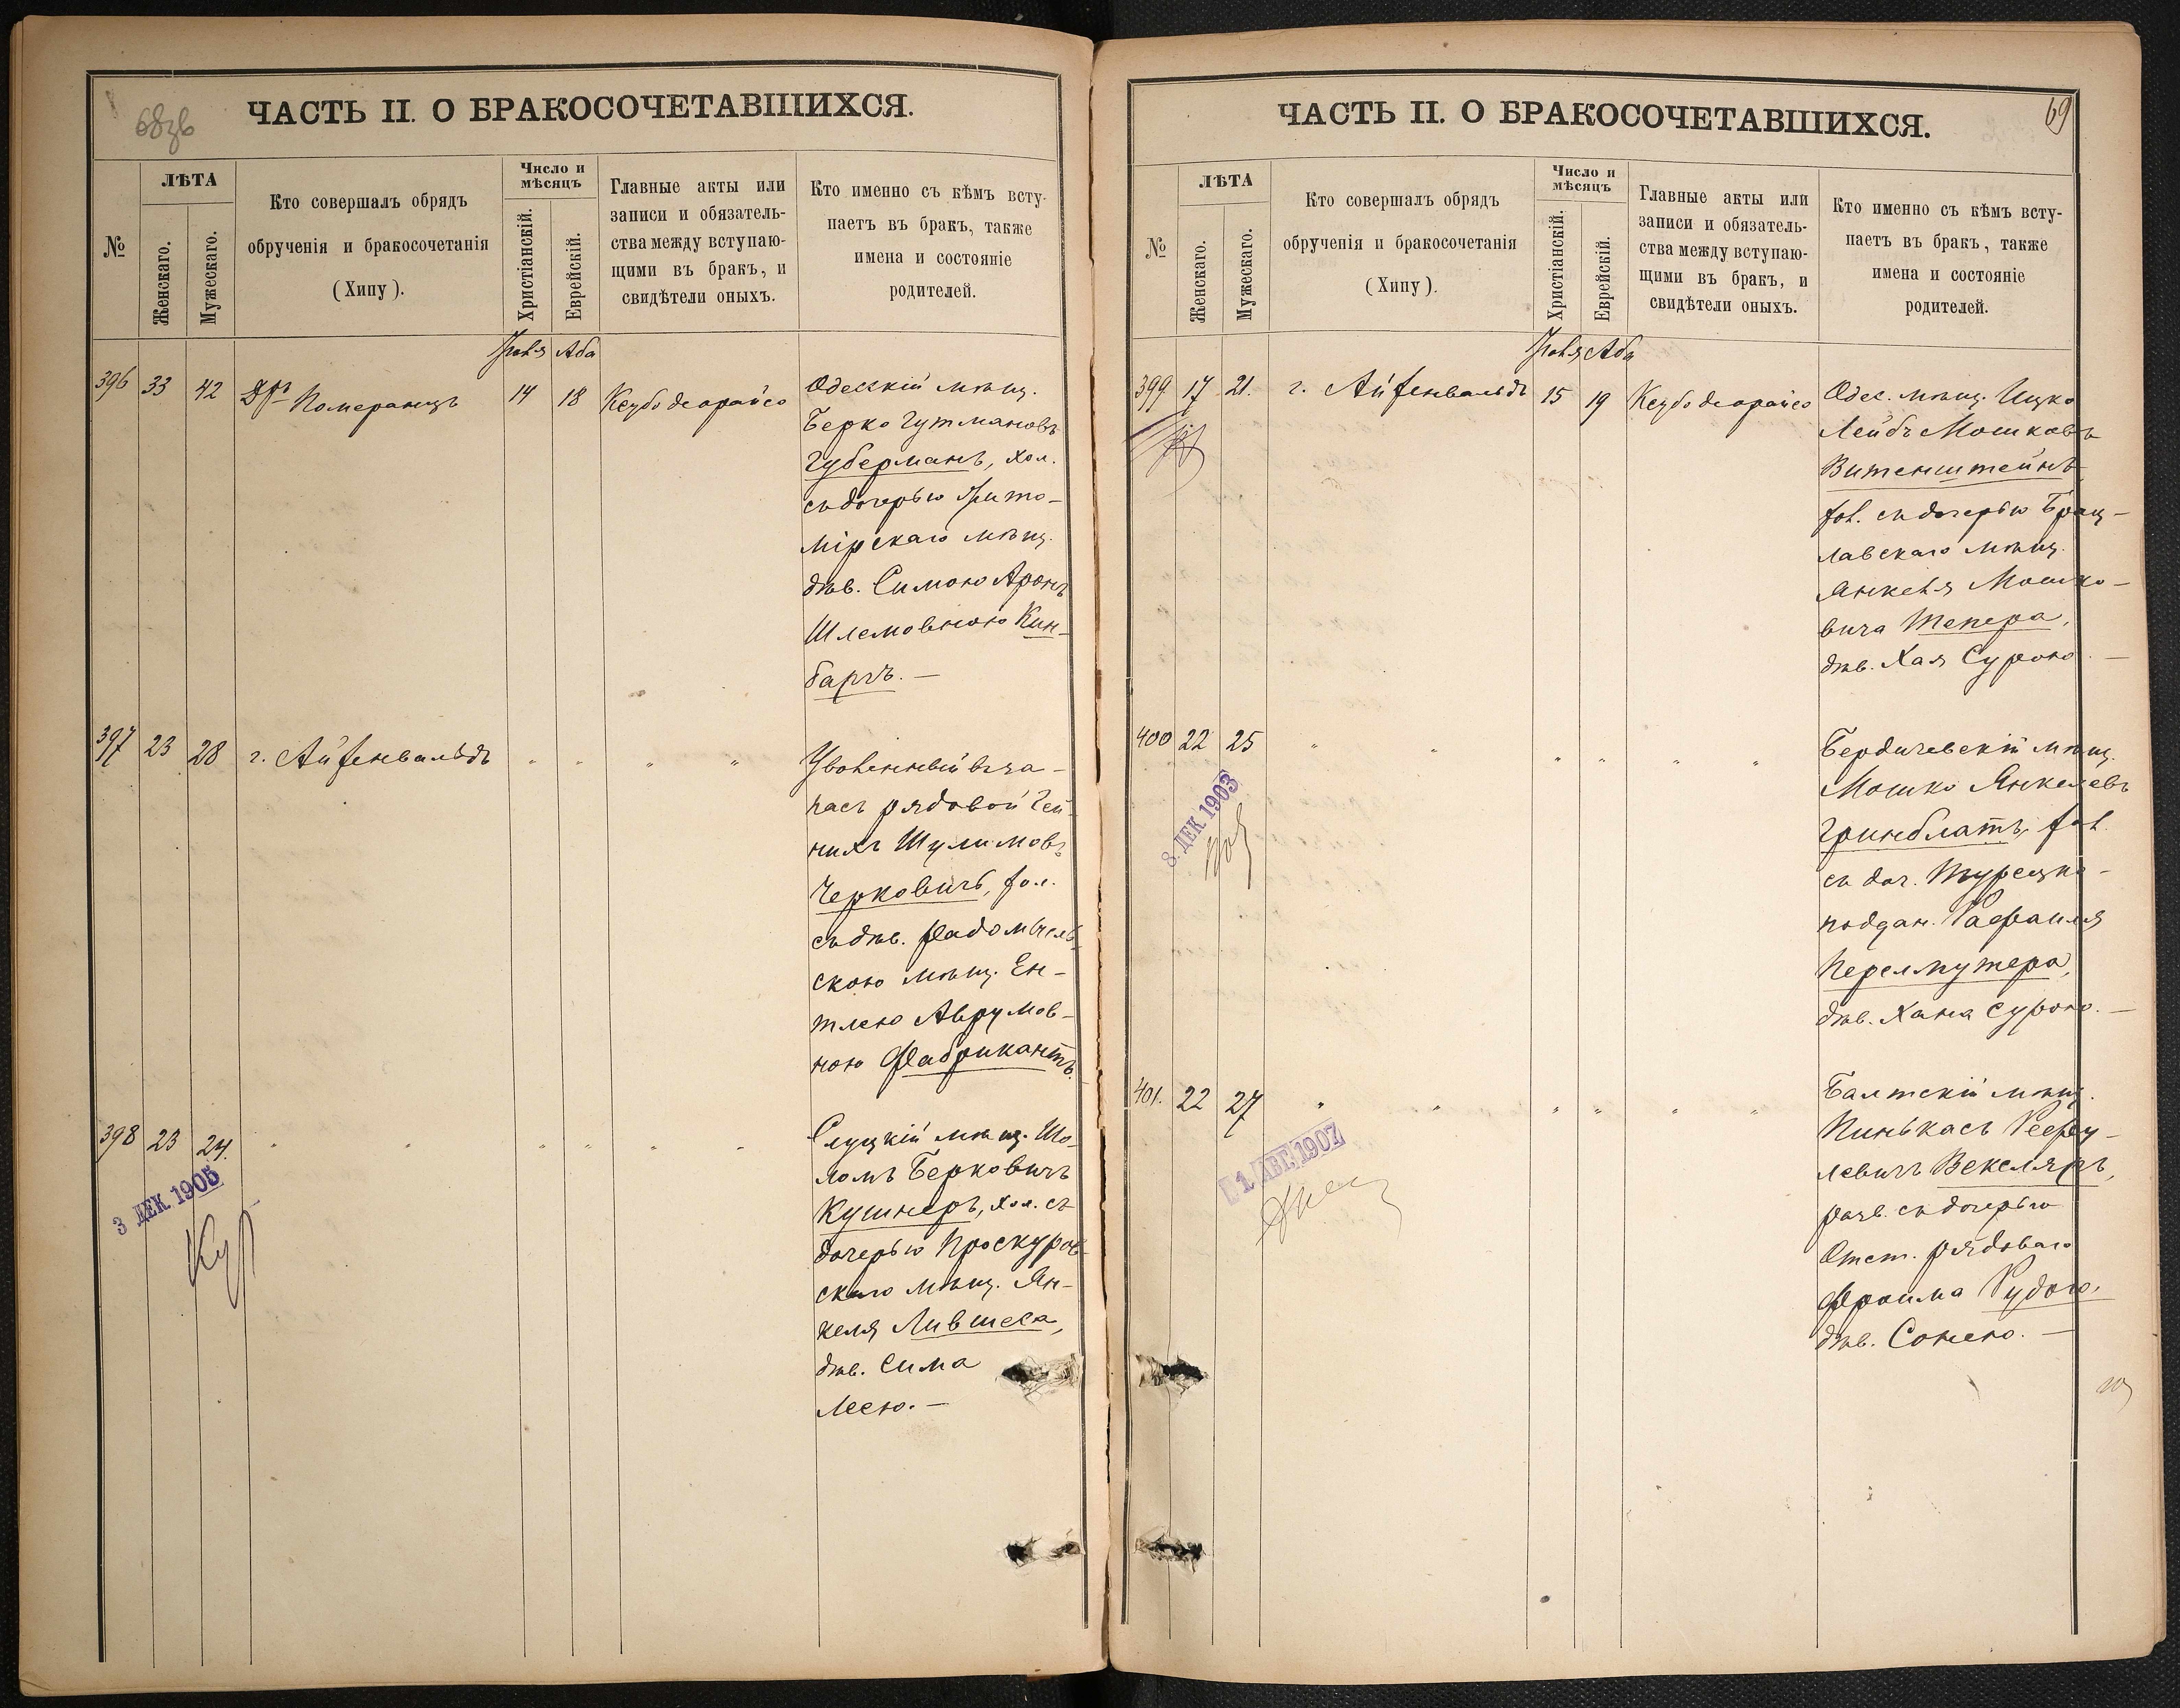 68 зв
ЧАСТЬ II. О БРАКОСОЧЕТАВШИХСЯ.
№
ЛѢТА
Женскаго.
Мужескаго.
Кто совершалъ обрядъ
обрученія и бракосочетанія
(Хипу).
Число и
мѣсяцъ
Христіанскій.
Еврейскій.
Главные акты или
записи и обязатель-
ства между вступаю-
щими въ бракъ, и
свидѣтели оныхъ.
Кто именно съ кѣмъ всту-
паетъ въ бракъ, также
имена и состояніе
родителей.
Іюля Аба
396 33 42 Дръ Померанцъ 14 18 Ксубо деорайсо
Одесскій мѣщ.
Берко Гутмановъ
Губерманъ, хол.
съ дочерью Жито-
мірскаго мѣщ.
дѣв. Симою Аронъ
Шлемовною Кин-
барсъ. —
397 23 28 г. Айзенвальдъ " " " "
Уволенный въ за-
пасъ рядовой Гей-
нихъ Шулимовъ
Черковичъ, хол.
съ дѣв. Радомысль-
скою мѣщ. Ен-
тлею Аврумов-
ною Фабрикантъ.
398 23 24. " " " " " "
3 ДЕК. 1905
Слуцкій мѣщ. Шо-
ломъ Берковичъ
Кушнеръ, хол. съ
дочерью Проскуров-
скаго мѣщ. Ян-
келя Лившеса,
дѣв. Сима
Лею. —
69
ЧАСТЬ II. О БРАКОСОЧЕТАВШИХСЯ.
№
ЛѢТА
Женскаго.
Мужескаго.
Кто совершалъ обрядъ
обрученія и бракосочетанія
(Хипу).
Число и
мѣсяцъ
Христіанскій.
Еврейскій.
Главные акты или
записи и обязатель-
ства между вступаю-
щими въ бракъ, и
свидѣтели оныхъ.
Кто именно съ кѣмъ всту-
паетъ въ бракъ, также
имена и состояніе
родителей.
Іюля Аба
399 17 21. г. Айзенвальдъ 15 19 Ксубо деорайсо
Одес. мѣщ. Ицко
Лейбъ Мошковъ
Витенштейнъ
хол. съ дочерью Брац-
лавскаго мѣщ.
Янкеля Мошко-
вича Тепера,
дѣв. Хая Сурою. —
400 22 25 " " " " " "
8. ДЕК. 1903
Бердичевскій мѣщ.
Мошко Янкелевъ
Гринблатъ, хол.
съ доч. Турецко-
поддан. Рафаила
Перелмутера,
дѣв. Хана Сурою. —
401. 22 27 " " " " " "
1 АВГ. 1907
Балтскій мѣщ.
Пинькасъ
левичъ Векслеръ,
разв. съ дочерью
Отст. рядоваго
Фроима Рудою.
дѣв. Сонею. —